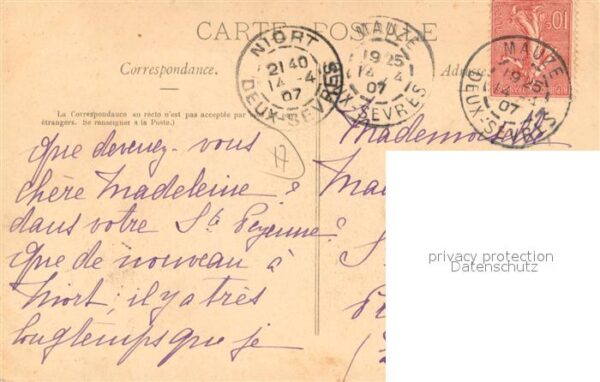 CARTE POSTALE
Correspondance.
Adresse
La Correspondance au recto n'est pas acceptée par
étrangers. (Se renseigner à la Poste.)
NIORT
21 40
14 -4
07
DEUX-SÈVRES
MAUZÉ
19 25
14 -4
07
X-SÈVRES
MAUZÉ
19 25
14 -4
07
DEUX-SÈVRES
10
Que devenez-vous
chère Madeleine ?
dans votre Ste Pezenne ?
Que de nouveau à
Niort ; il y a très
longtemps que je
Mademoiselle
Ma
S
(
privacy protection
Datenschutz